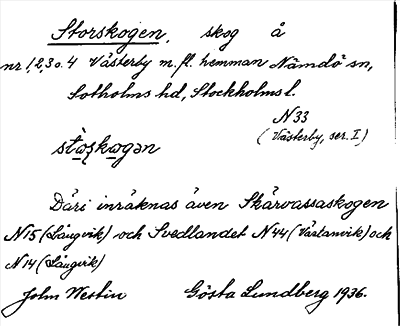 Storskogen, skog å
nr 1,2,3 o. 4 Västerby m. fl. hemman Nämdö sn,
Sotholms hd, Stockholms l.
N 33
(Västerby, ser. I)
Däri inräknas även Skärvassaskogen
N 15 (Långvik) och Svedlandet N 44 (Västanvik) och
N 14 (Långvik)
John Westin Gösta Lundberg 1936.